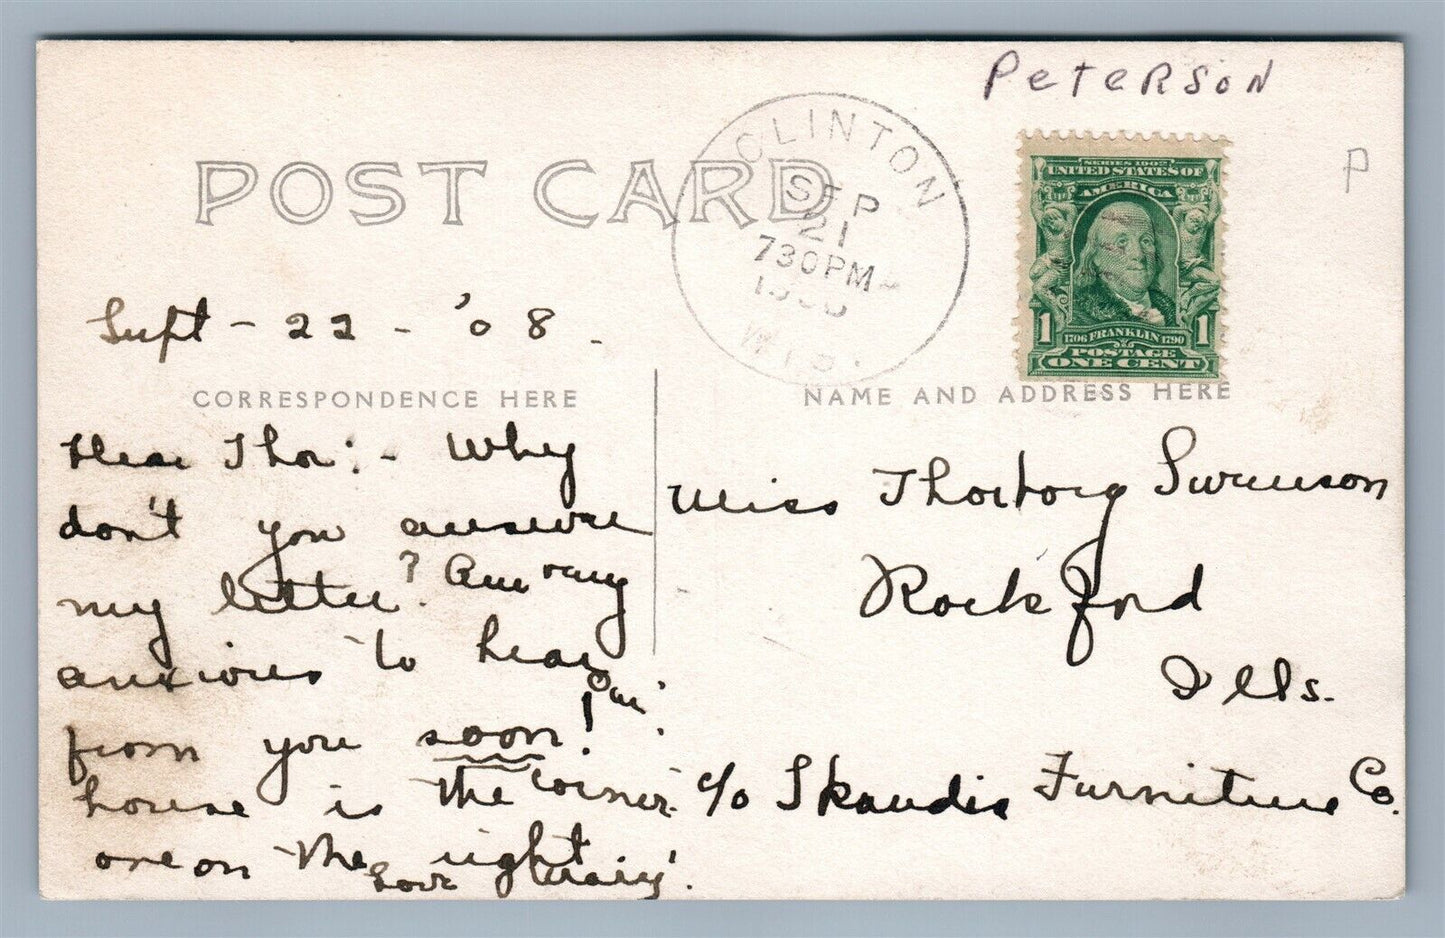 PETERSON
P
POST CARD
CLINTON
SEP
21
730PM
WIS.
SERIES 1902
UNITED STATES OF
AMERICA
1 1
1706 FRANKLIN 1790
POSTAGE
ONE CENT
Sept - 22 - '08.
CORRESPONDENCE HERE
Dear Thor:- Why
don't you answer
my letter? Am very
anxious to hear
from you soon! Our
house is the corner
one on the right.
Love
NAME AND ADDRESS HERE
Miss Thorborg Swanson
Rockford
Ills.
c/o Skandia Furniture Co.